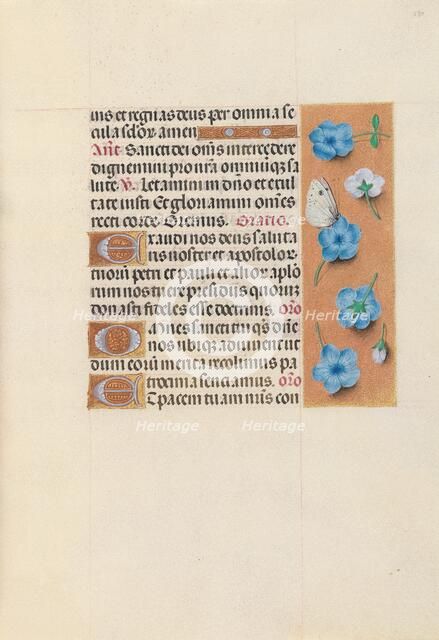 uis et regnas deus per omnia se
cula sc̄lor̄ amen
Añt Sancti dei om̄s intercedere
dignemini pro nr̄a omniūq3 sa
lute ℣. Letamini in dn̄o et exul
tate iusti Et gloriamini om̄es
recti corde Oremus. Oratio.
Exaudi nos deus saluta
ris noster et apostolor̄
tuor̄ petri et pauli et alior̄ aplo
rum nos tuere presidijs quor̄
donasti fideles esse doctrinis. or̄o
Om̄es sancti tui q̄s dn̄e
nos ubiq3 adiuuent ut
dum eor̄ merita recolimus pa
trocinia senciamus. or̄o
Et pacem tuam n̄ris con
Heritage
Heritage
Heritage
Heritage
Heritage
Heritage